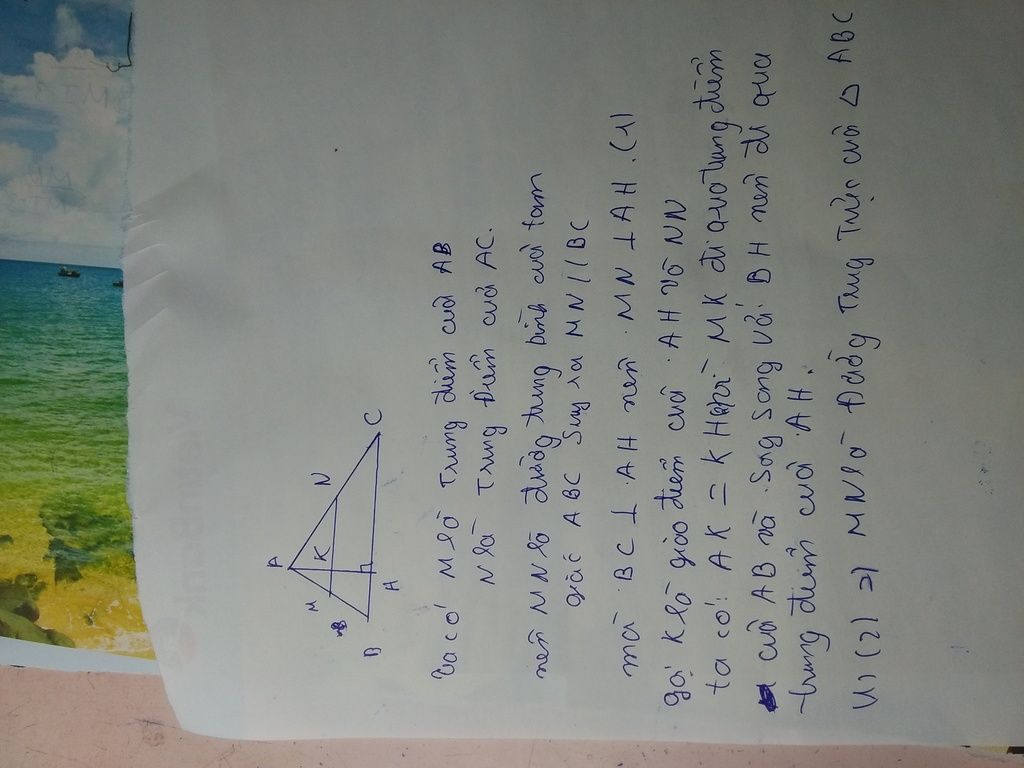 A
M
K
N
B
H
C
Ta có M là Trung điểm của AB
N là Trung Điểm của AC.
nên MN là đường trung bình của tam
giác ABC Suy ra MN//BC
mà BC ⊥ AH nên MN ⊥ AH. (1)
gọi K là giao điểm của AH và NN
ta có: AK = KH MK đi qua trung điểm
của AB và song song với BH nên đi qua
trung điểm của AH.
(1) (2) => MN là Đường Trung Trực của △ ABC